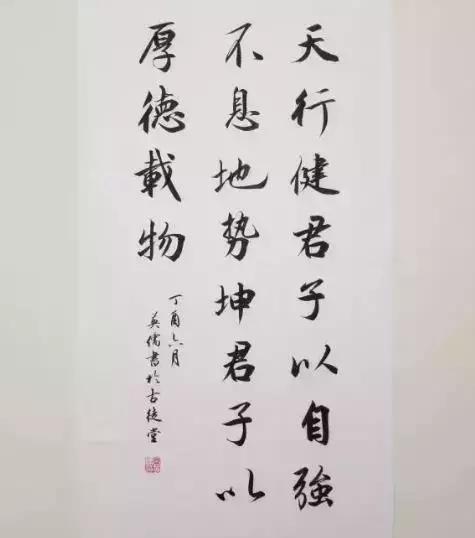 天行健君子以自強
不息地势坤君子以
厚德載物
丁酉六月
英儒書於古建堂